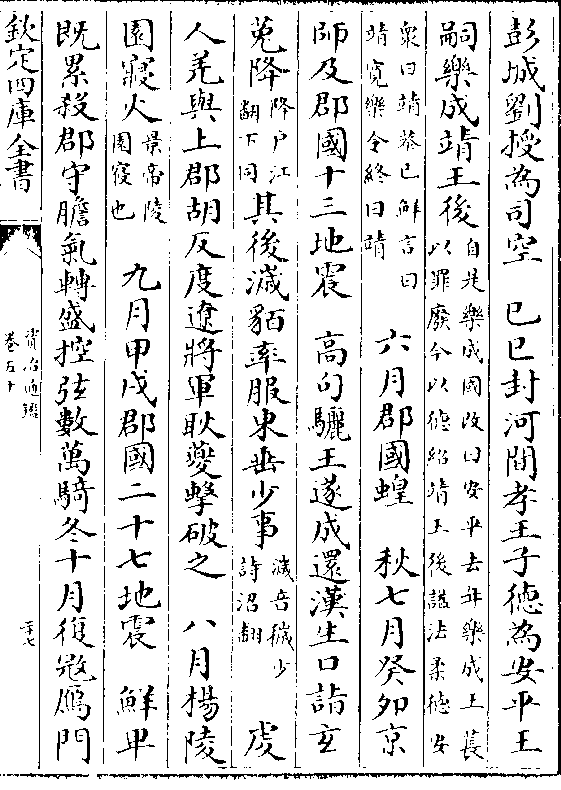 彭城劉授為司空　己巳封河間孝王子德為安平王
嗣樂成靖王後自是樂成國改曰安平去年樂成王萇以罪廢今以德紹靖王後諡法柔德安
衆曰靖恭已鮮言曰靖寛樂令終曰靖　六月郡國蝗　秋七月癸卯京
師及郡國十三地震　高句驪王遂成還漢生口詣玄
菟降降户江翻下同其後濊貊率服東垂少事濊音穢少詩沼翻　虔
人羌與上郡胡反度遼將軍耿夔擊破之　八月楊陵
園寢火景帝陵園寢也　九月甲戌郡國二十七地震　鮮卑
既累殺郡守膽氣轉盛控弦數萬騎冬十月復寇鴈門
欽定四庫全書
資治通鑑
卷五十